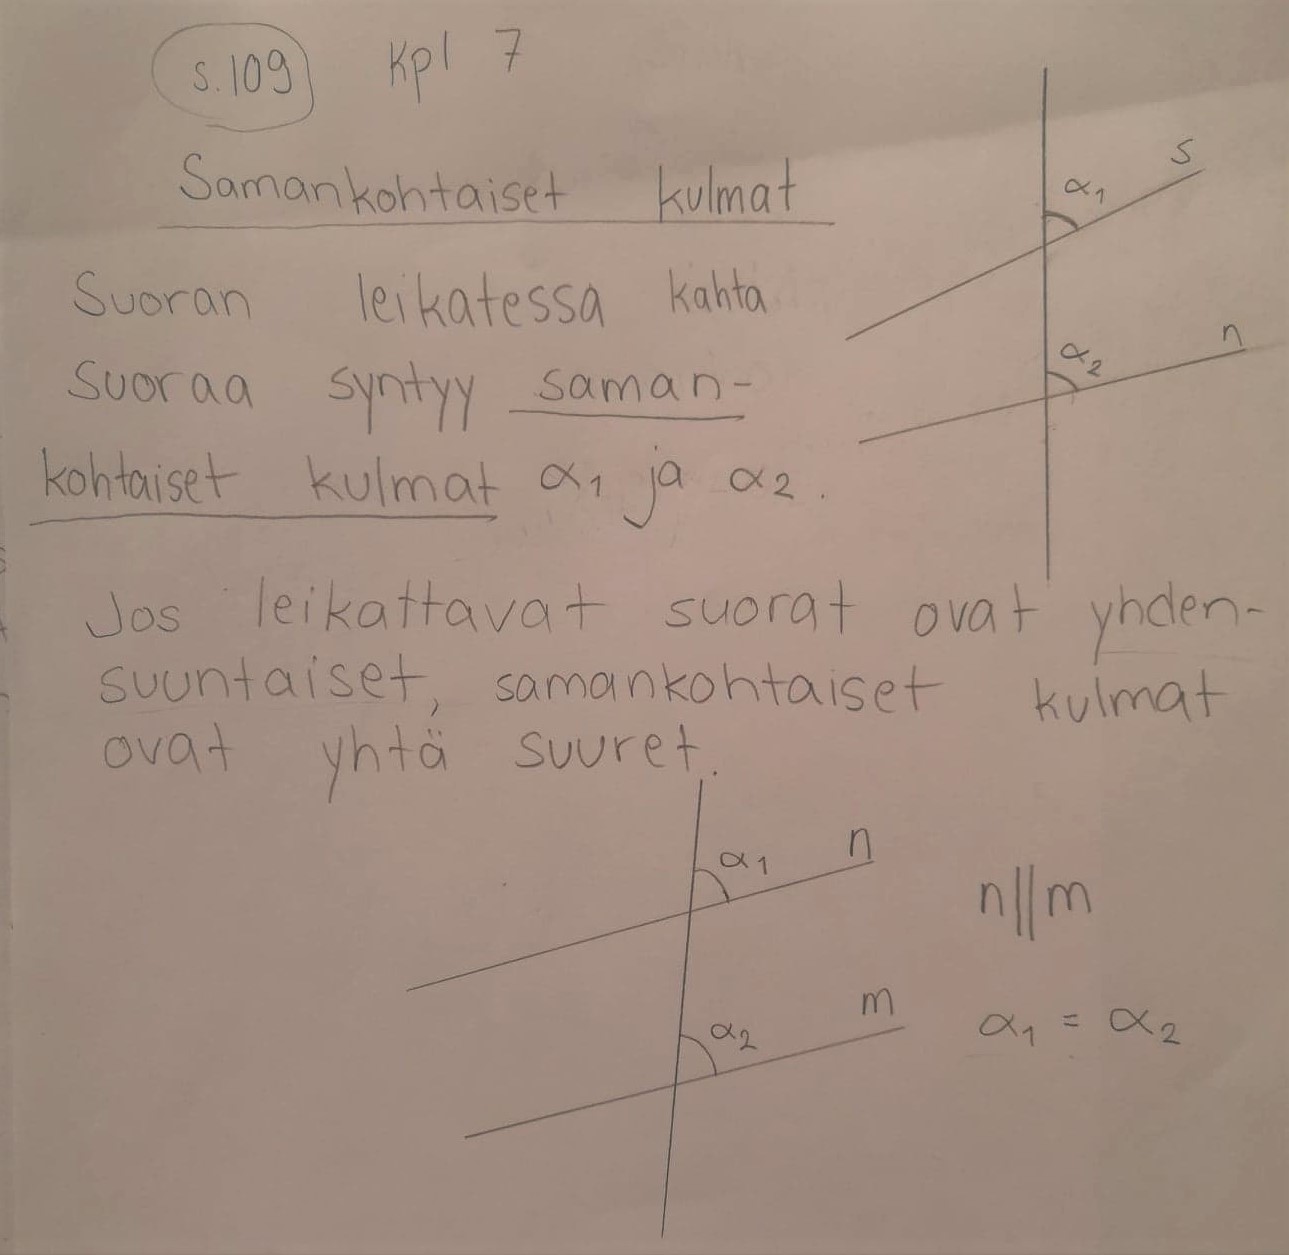 s.109 Kpl 7
Samankohtaiset kulmat
Suoran leikatessa kahta
suoraa syntyy saman-
kohtaiset kulmat α₁ ja α₂.
s
α₁
n
α₂
Jos leikattavat suorat ovat yhden-
suuntaiset, samankohtaiset kulmat
ovat yhtä suuret.
α₁ n
n||m
α₂ m
α₁ = α₂